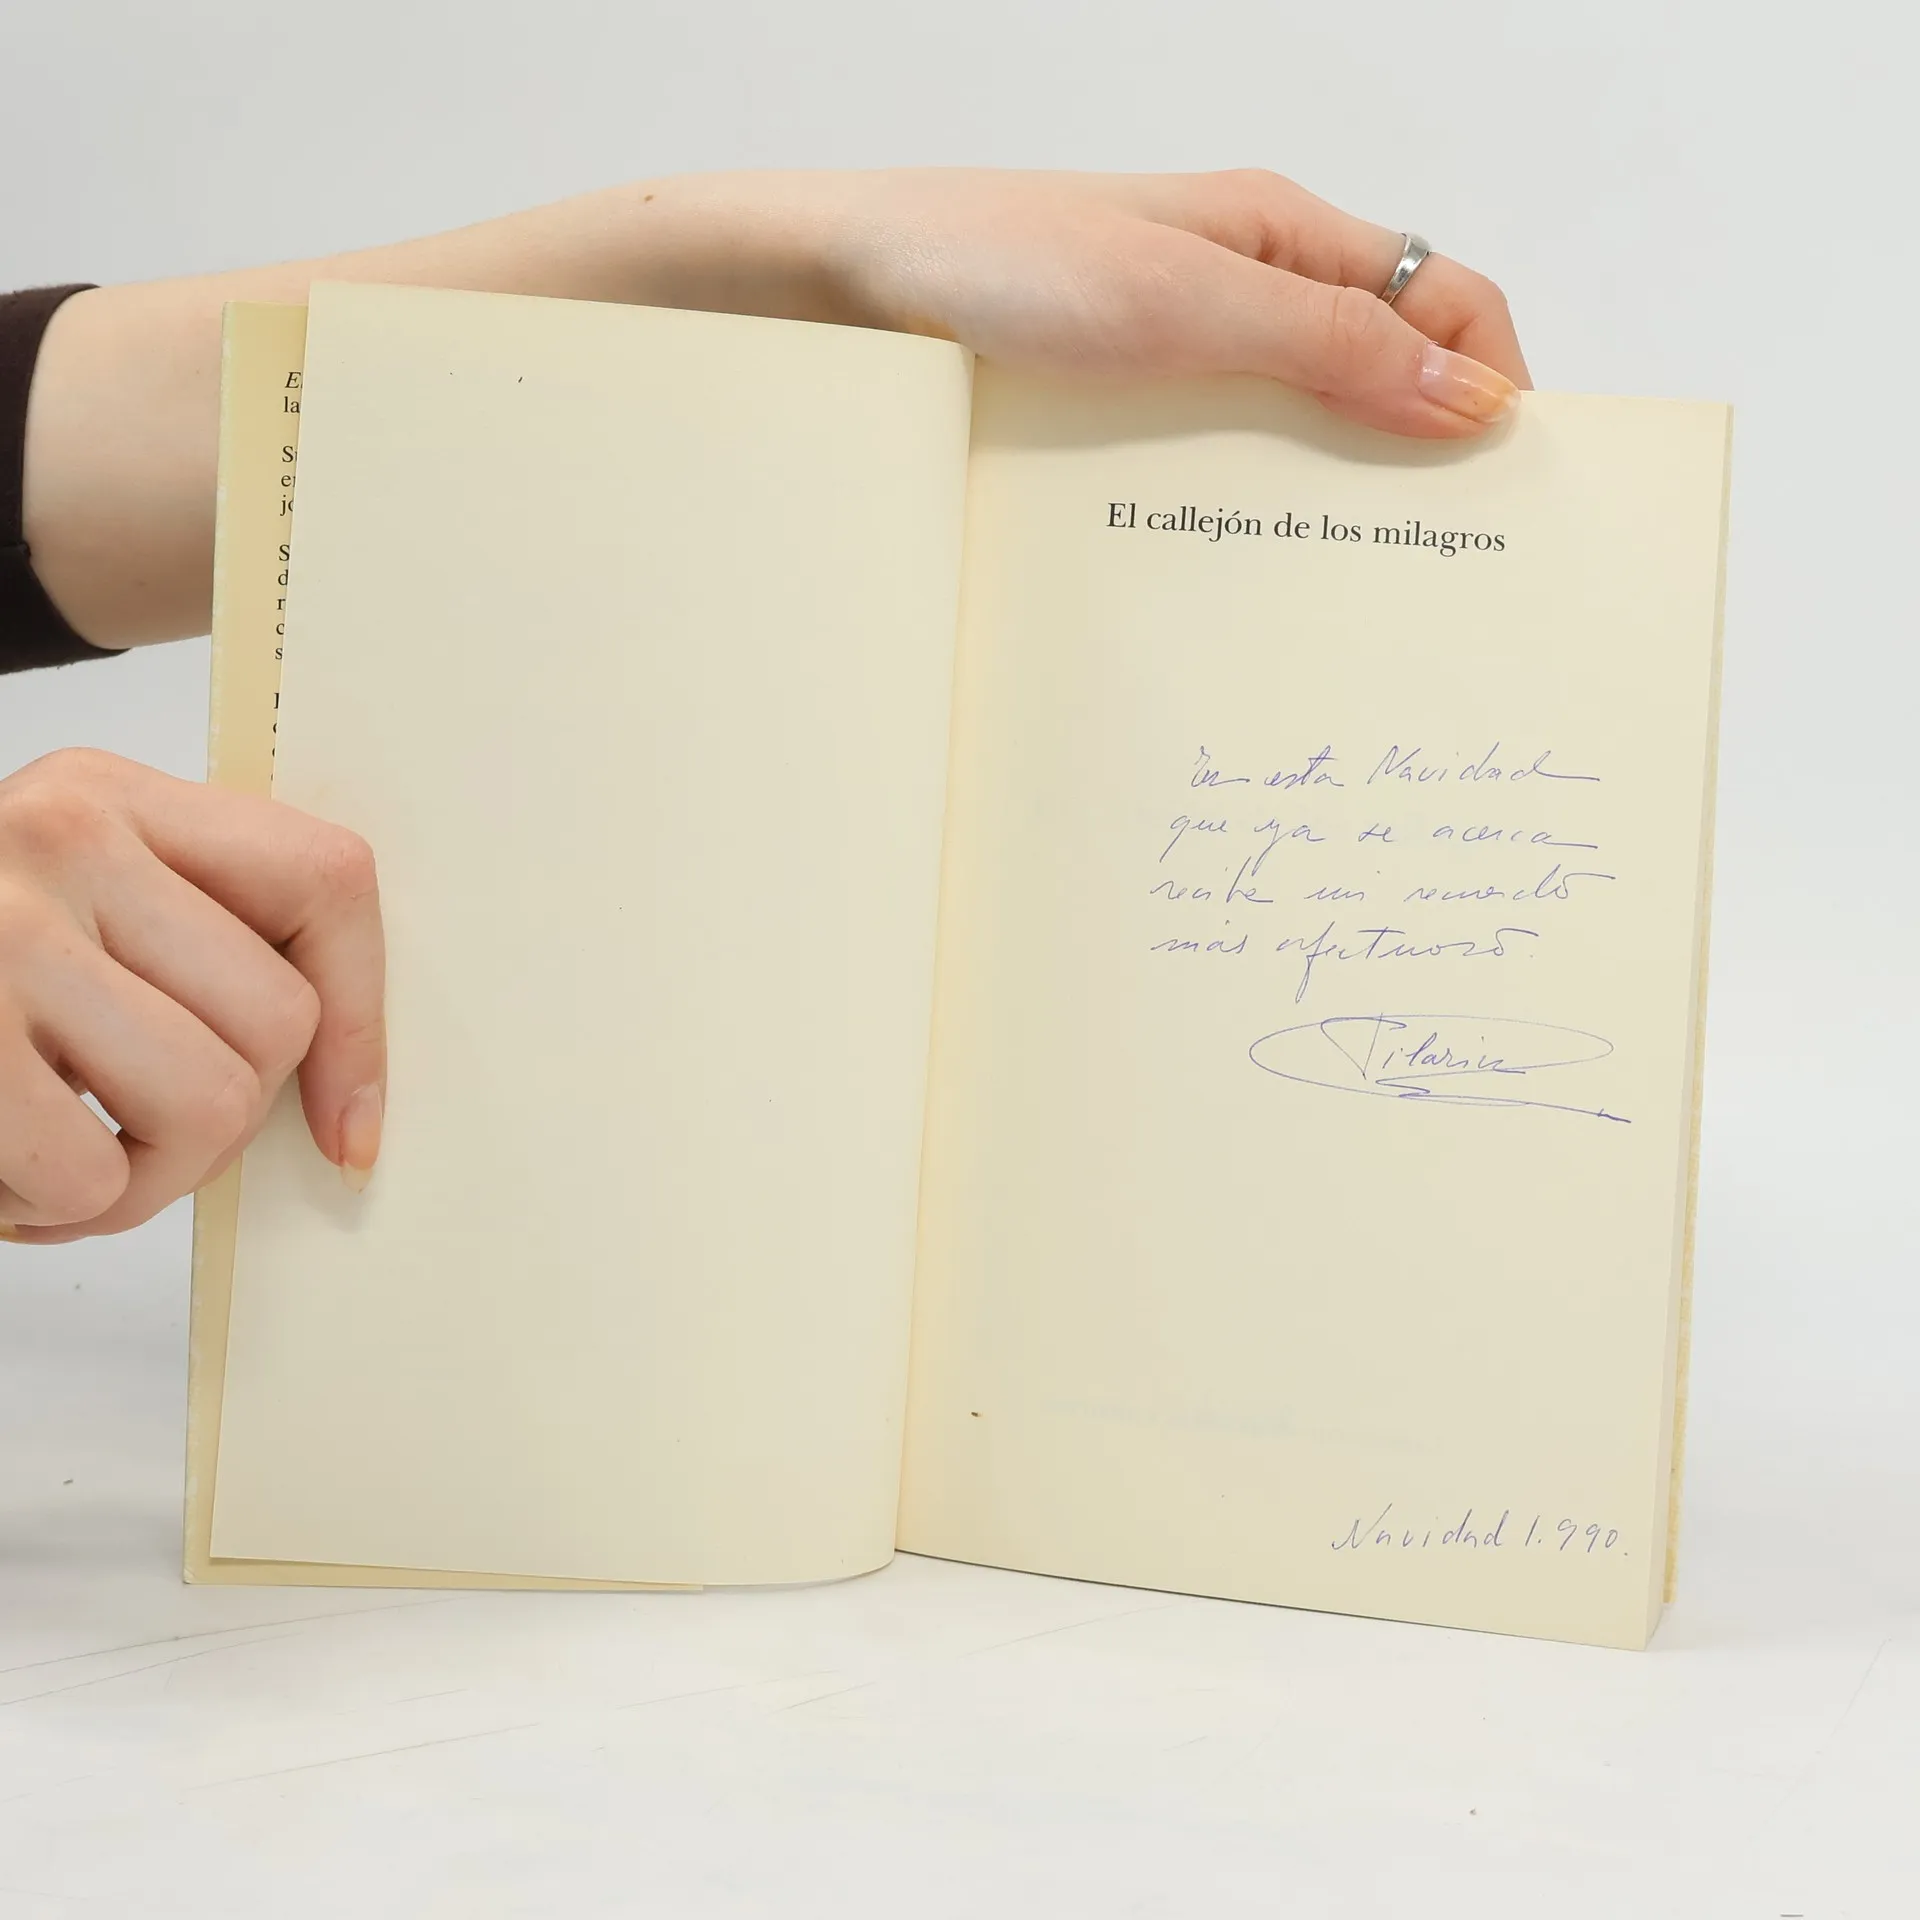 E
la
S
e
j
S
d
r
c
s
El callejón de los milagros
En esta Navidad
que ya se acerca
recibe mi recuerdo
más afectuoso.
Pilarín
Navidad 1.990.